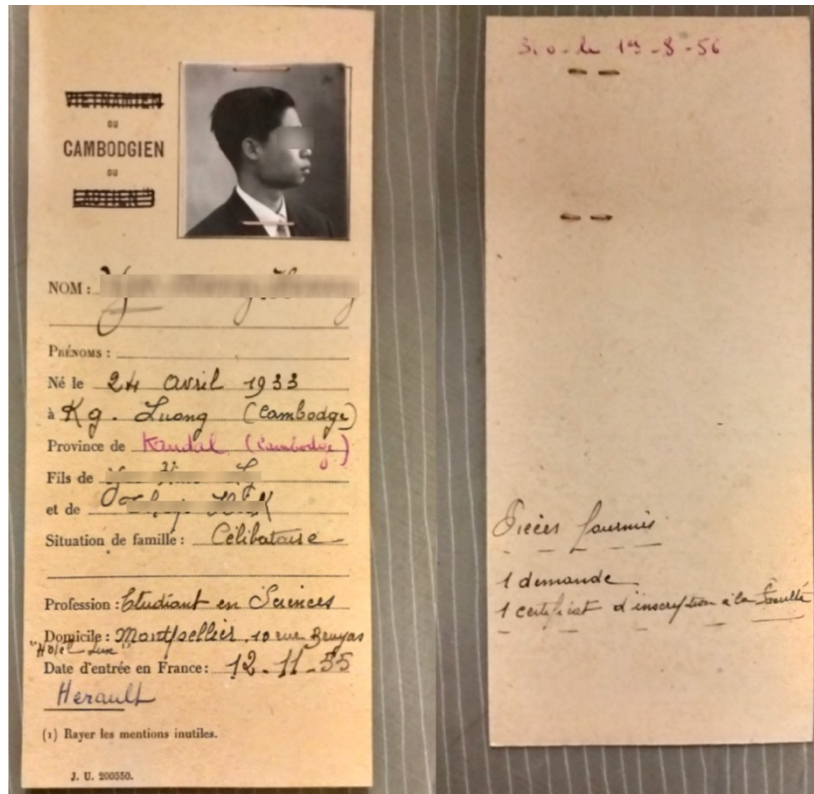 VIETNAMIEN
OU
CAMBODGIEN
OU
LAOTIEN
NOM :
PRÉNOMS :
Né le 24 avril 1933
à Kg. Luong (Cambodge)
Province de Kandal (Cambodge)
Fils de
et de
Situation de famille : Célibataire -
Profession : Etudiant en Sciences
Domicile : Montpellier, 10 rue Bruyas
"Hôtel Lux"
Date d'entrée en France : 12-11-55
Herault
(1) Rayer les mentions inutiles.
J. U. 200550.
le 1er-8-56
Pièces fournies
1 demande
1 certificat d'inscription à la Faculté